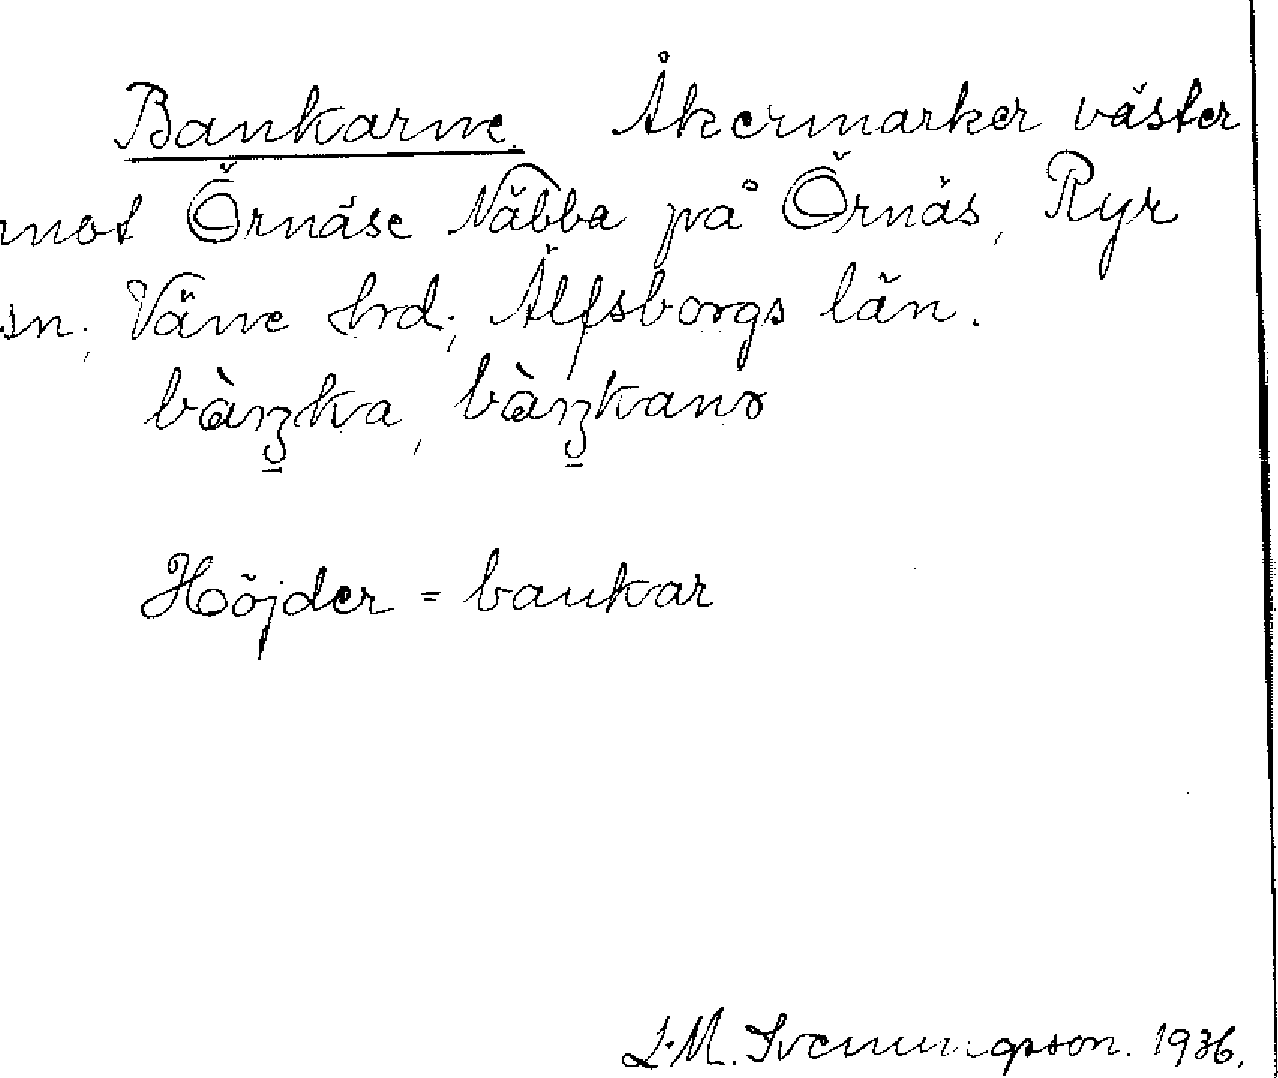 Bankarne. Åkermarker väster
mot Örnäse Näbba på Örnäs, Ryr
sn, Väne hrd., Älfsborgs län.
bàŋka, bàŋkanɤ
Höjder = bankar
L.M. Svenningson. 1936.